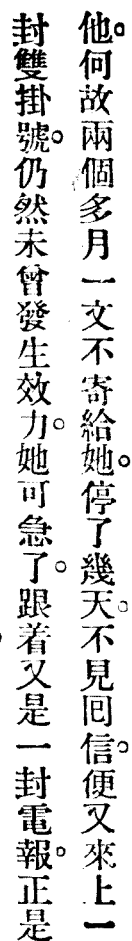 他。何故兩個多月一文不寄給她。停了幾天。不見囘信。便又來上一
封雙掛號。仍然未曾發生效力。她可急了。跟着又是一封電報。正是